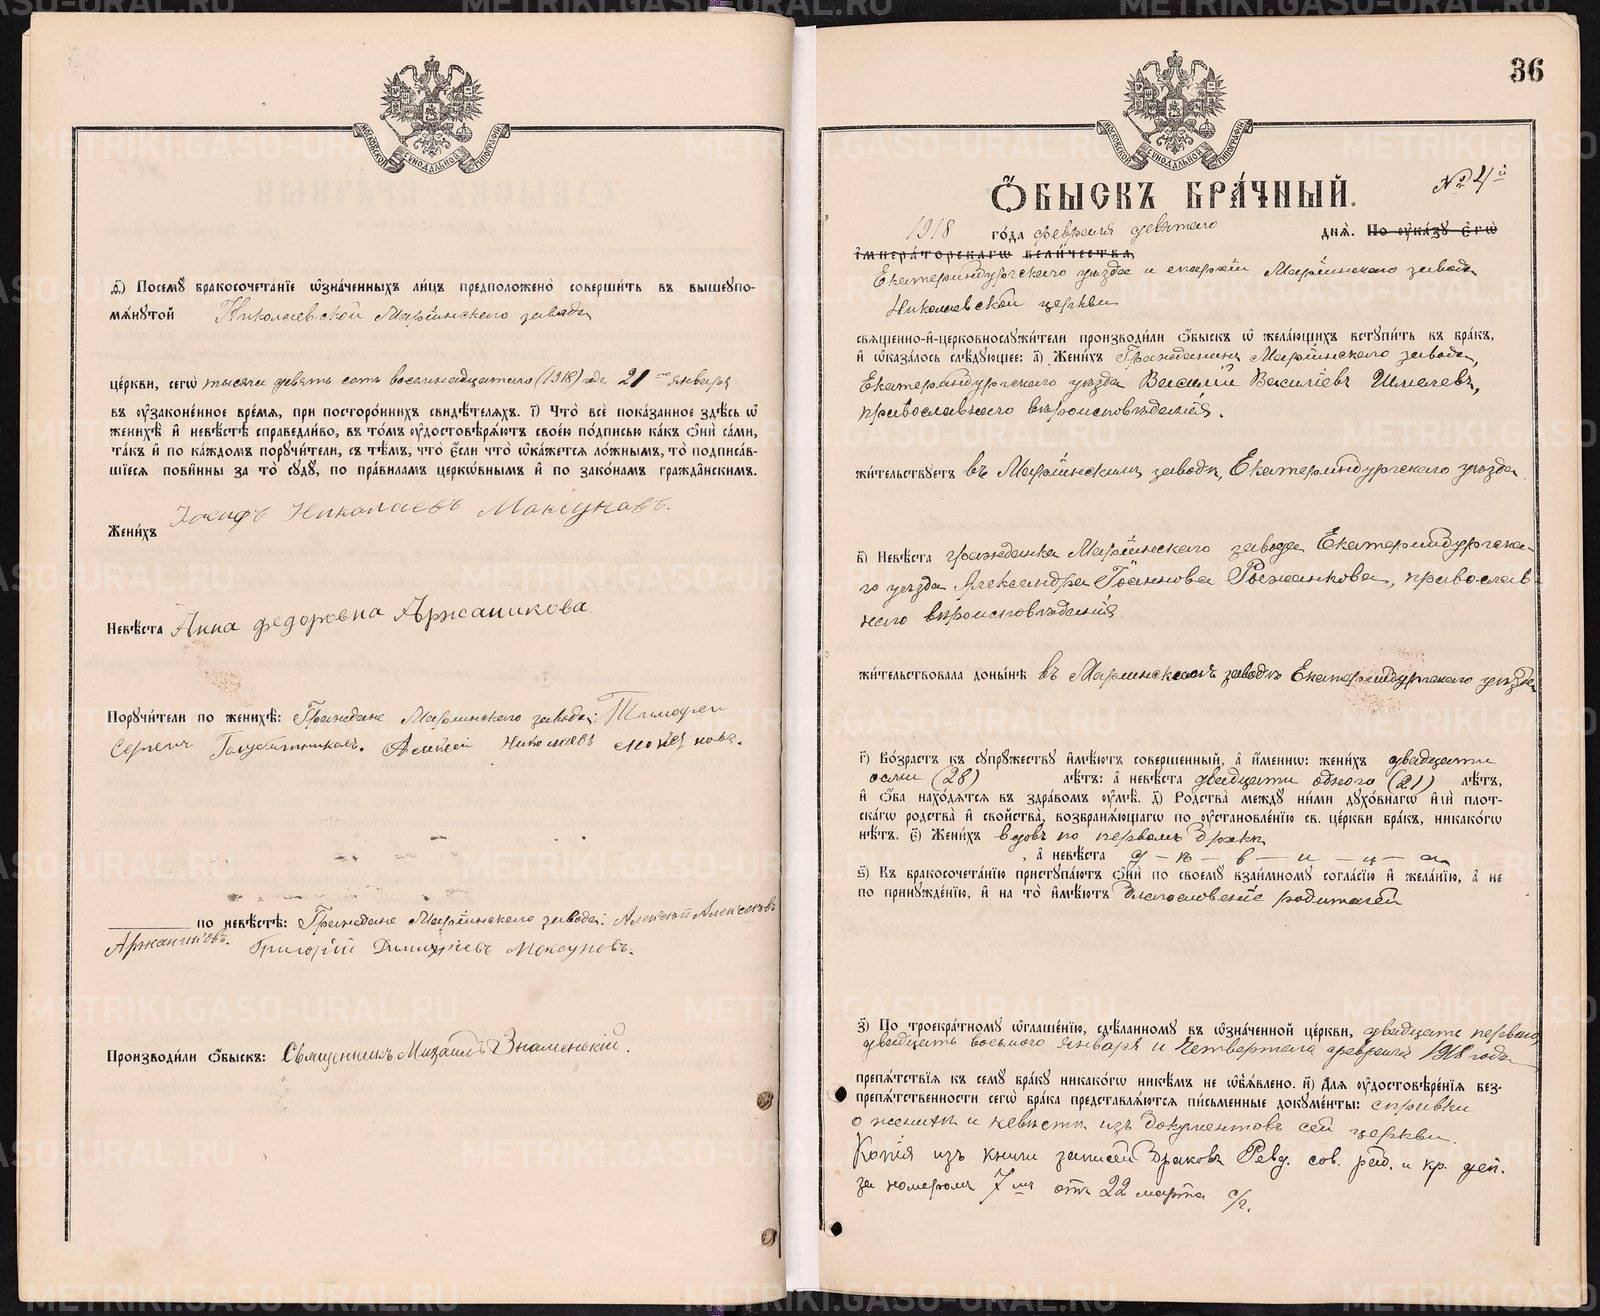 МОСКОВСКОЙ СѴНОДАЛЬНОЙ ТИПОГРАФІИ
ѳ҃) Посему бракосочетаніе ѡзначенныхъ лицъ предположено совершить въ вышеупо-
мянутой Николаевской Маріинскаго завода
церкви, сегѡ тысяча девять сотъ восемнадцатаго (1918) года 21 го января
въ оузаконенное время, при постороннихъ свидѣтеляхъ. і҃) Что все показанное здѣсь ѡ
женихѣ и невѣстѣ справедливо, въ томъ оудостовѣряютъ своею подписью какъ ѻни сами,
такъ и по каждомъ поручители, съ тѣмъ, что если что ѡкажется ложнымъ, то подписав-
шіеся повинны за то суду, по правиламъ церковнымъ и по законамъ гражданскимъ.
Женихъ Іосифъ Николаевъ Моксуновъ.
Невѣста Анна Федоровна Аржаникова
Поручители по женихѣ: Граждане Маріинскаго завода: Тимофей
Сергеич Алексей Николаевъ
по невѣстѣ: Граждане Маріинскаго завода: Алексей Алексѣевъ
Григорій Димитріевъ Моксуновъ.
Производили ѻбыскъ: Священникъ Михаилъ Знаменскій.
36
МОСКОВСКОЙ СѴНОДАЛЬНОЙ ТИПОГРАФІИ
№ 4й
Ѻбыскъ брачный.
1918 года февраля девятаго дня. По оуказу Егѡ
Императорскагѡ Величества,
Екатеринбургскаго уѣзда и епархіи Маріинскаго завода
Николаевской церкви
священно-и-церковнослужители производили ѻбыскъ ѡ желающихъ вступить въ бракъ,
и ѡказалось слѣдующее: а҃) Женихъ Гражданинъ Маріинскаго завода,
Екатеринбургскаго уѣзда Василій Васильевъ Шмелевъ,
православнаго вѣроисповѣданія.
жительствуетъ въ Маріинскомъ заводѣ, Екатеринбургскаго уѣзда
в҃) Невѣста гражданка Маріинскаго завода Екатеринбургска-
го уѣзда Александра Іоаннова Рожанкова, православ-
наго вѣроисповѣданія.
жительствовала донынѣ въ Маріинскомъ заводѣ Екатеринбургскаго уѣзда
г҃) Возрастъ къ супружеству имѣютъ совершенный, а именнѡ: женихъ двадцати
осми (28) лѣтъ: а невѣста двадцати одного (21) лѣтъ,
и ѻба находятся въ здравомъ оумѣ. д҃) Родства между ними духовнагѡ или плот-
скагѡ родства и свойства, возбраняющагѡ по оустановленію св. церкви бракъ, никакогѡ
нѣтъ. є҃) Женихъ вдовъ по первомъ бракѣ
, а невѣста д – ѣ – в – и – ц – а
ѕ҃) Къ бракосочетанію приступаютъ ѻни по своему взаимному согласію и желанію, а не
по принужденію, и на то имѣютъ благословеніе родителей
з҃) По троекратному ѡглашенію, сдѣланному въ ѡзначенной церкви, двадцать перваго,
двадцать восьмого января и четвертаго февраля 1918 года
препятствія къ сему браку никакогѡ никѣмъ не ѡбъявлено. и҃) Для оудостовѣренія без-
препятственности сегѡ брака представляются письменные документы: справки
о женихѣ и невѣстѣ изъ документовъ сей церкви.
Копія изъ книги записей браковъ Ревд. сов. раб. и кр. деп.
за номеромъ 7 мъ отъ 22 марта с/г.